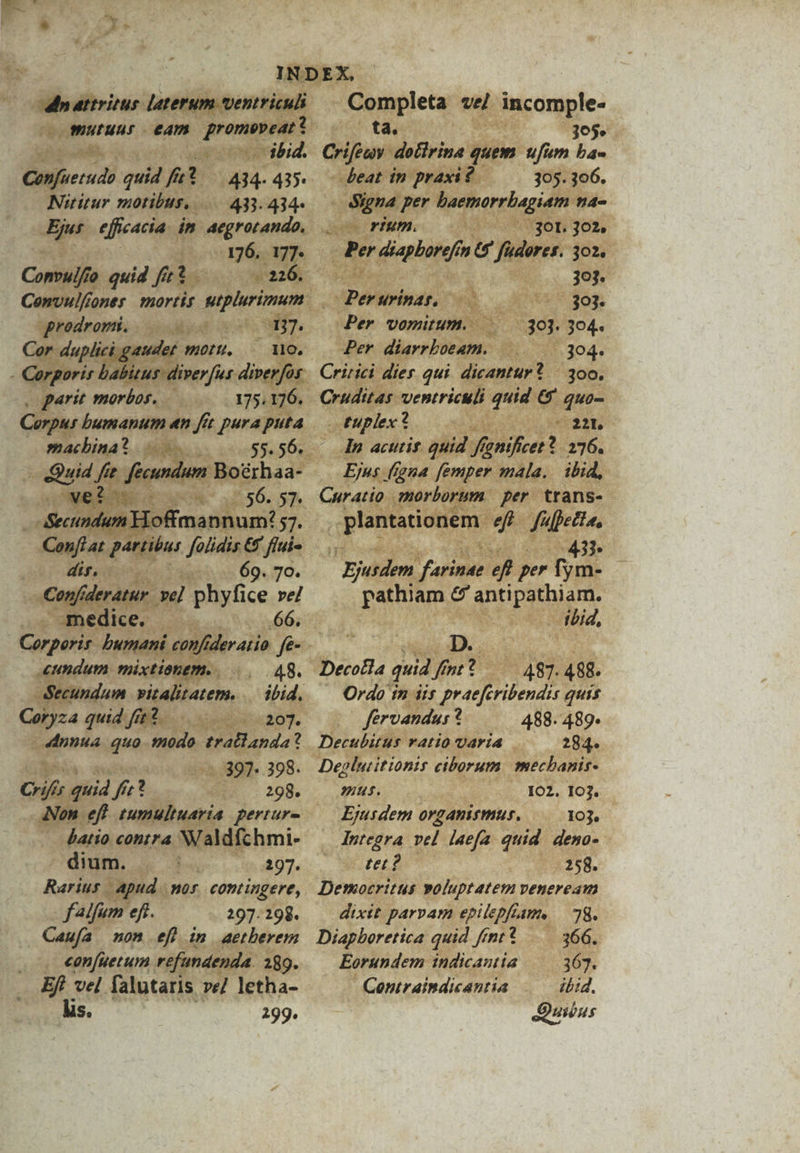 INDEX.
An attritus laterum ventriculi
mutuus eam promoveat?
ibid.
Conſuetudo quid ſit? 434. 435.
Nititur motibus. 433. 434.
Ejus efficacia in aegrotando.
176. 177.
Convulſio quid ſit? 226.
Convulſiones mortis utplurimum
prodromi. 137.
Cor duplici gaudet motu. 110.
Corporis habitus diverſus diverſos
parit morbos. 175. 176.
Corpus humanum an ſit pura puta
machina? 55. 56.
Quid ſit ſecundum Boërhaa-
ve? 56. 57.
Secundum Hoffmannum? 57.
Conſtat partibus ſolidis & flui-
dis. 69. 70.
Conſideratur vel phyſice vel
medice. 66.
Corporis humani conſideratio ſe-
cundum mixtionem. 48.
Secundum vitalitatem. ibid.
Coryza quid ſit? 207.
Annua quo modo tractanda?
397. 398.
Criſis quid ſit? 298.
Non eſt tumultuaria pertur-
batio contra Waldſchmi-
dium. 297.
Rarius apud nos contingere,
falſum eſt. 297. 298.
Cauſa non eſt in aetherem
conſuetum refundenda 289.
Eſt vel ſalutaris vel letha-
lis. 299.
Completa vel incomple-
ta. 305.
Criſeων doctrina quem uſum ha-
beat in praxi? 305. 306.
Signa per haemorrhagiam na-
rium. 301. 302.
Per diaphoreſin & ſudores. 302.
303.
Per urinas. 303.
Per vomitum. 303. 304.
Per diarrhoeam. 304.
Critici dies qui dicantur? 300.
Cruditas ventriculi quid & quo-
tuplex? 221.
In acutis quid ſignificet? 276.
Ejus ſigna ſemper mala. ibid.
Curatio morborum per trans-
plantationem eſt ſuſpecta.
433.
Ejusdem farinae eſt per ſym-
pathiam & antipathiam.
ibid.
D.
Decocta quid ſint? 487. 488.
Ordo in iis praeſcribendis quis
ſervandus? 488. 489.
Decubitus ratio varia 284.
Deglutitionis ciborum mechanis-
mus. 102. 103.
Ejusdem organismus. 103.
Integra vel laeſa quid deno-
tet? 258.
Democritus voluptatem veneream
dixit parvam epilepſiam. 78.
Diaphoretica quid ſint? 366.
Eorundem indicantia 367.
Contraindicantia ibid.
Quibus